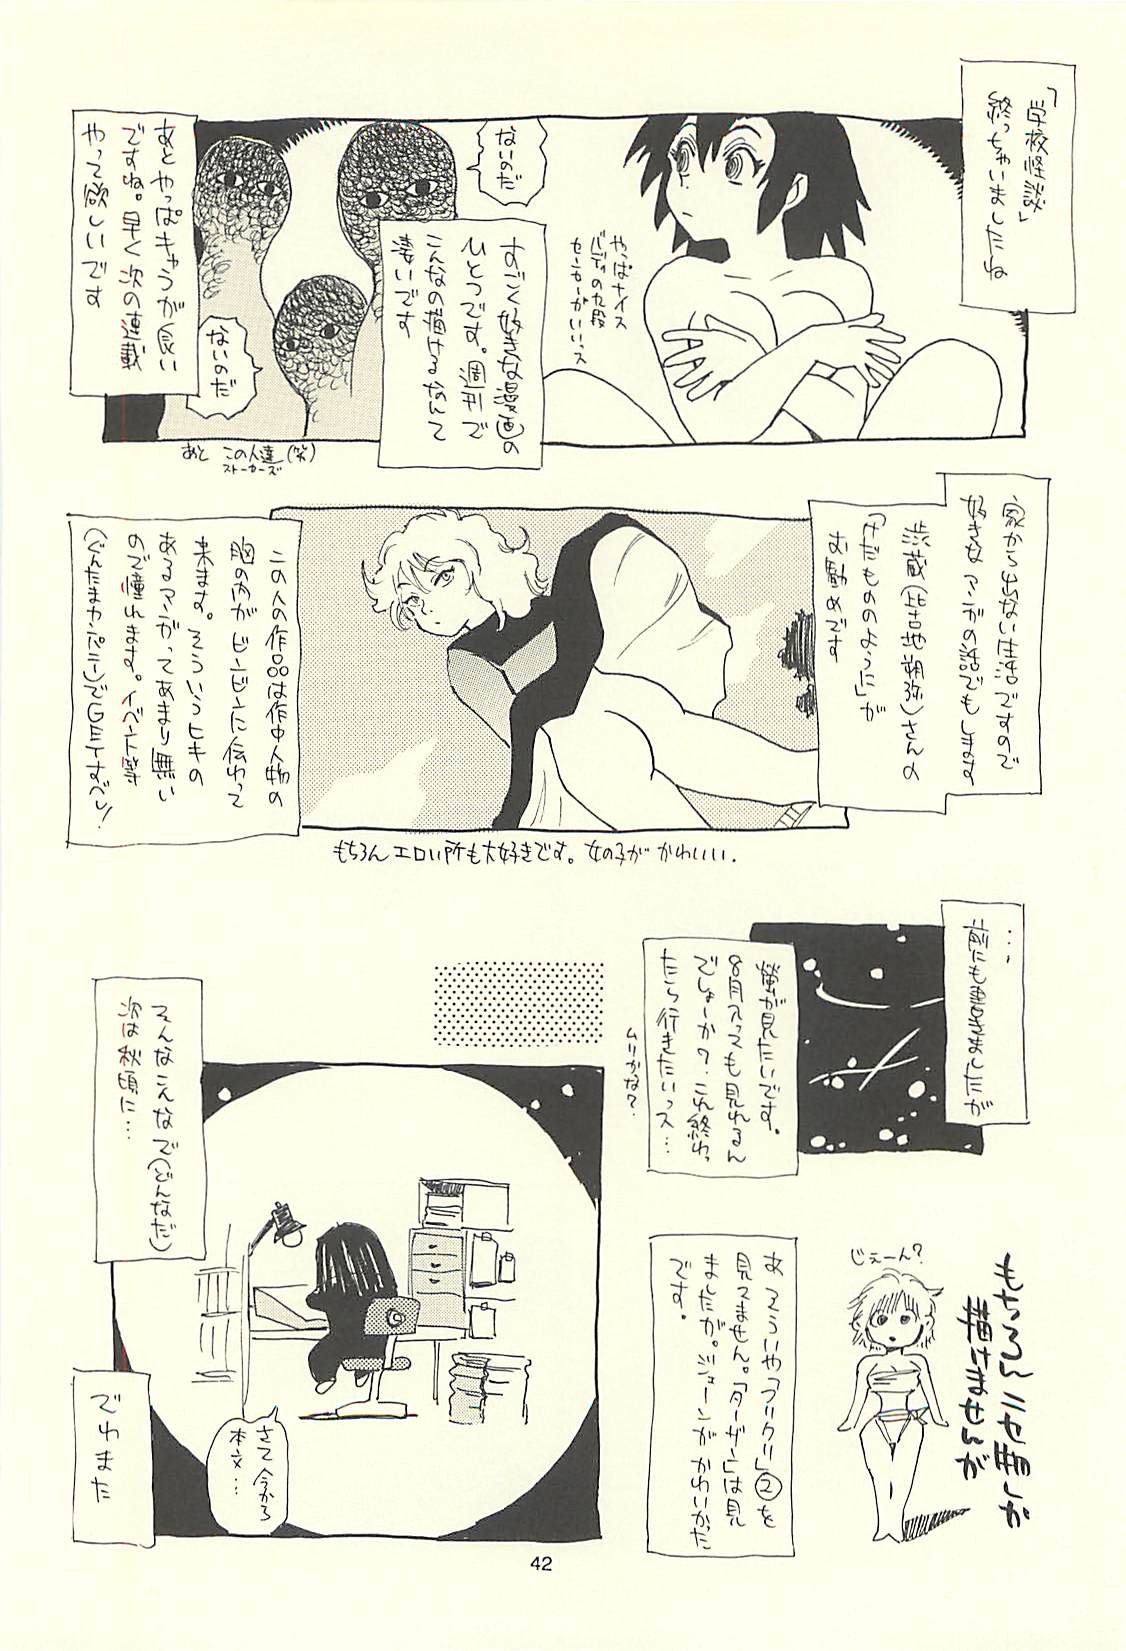 「学校怪談」
終っちゃいましたね
やっぱナイス
バディの九段
セーカーがいいっス
ないのだ
すごく好きな漫画の
ひとつです。週刊で
こんなの描けるなんて
凄いです
ないのだ
あと この人達(笑)
ストーカーズ
あとやっぱキャラが良い
ですね。早く次の連載
やって欲しいです
家から出ない生活ですので
好きなマンガの話でもします
渋蔵(比古地朔弥)さんの
「けだもののように」が
お勧めです
この人の作品は作中人物の
胸の内がビンビンに伝わって
来ます。そういうヒキの
あるマンガってあまり無い
ので憧れます。イベント等
(ぐんたまカンパニー)でGETすべし!
もちろんエロい所も大好きです。女の子が かわいい.
…,
前にも書きましたが
螢が見たいです。
8月アタマも見れるん
でしょーか?これ終わっ
たら行きたいっス…
ムリかな?
もちろんニセ物しか
描けませんが
じぇーん?
あ そういやっフリクリ」②を
見てません。「ターザン」は見
ましたが。ジェーンがかわいかった
です。
そんなこんなで(どんなだ)
次は秋頃に…
さて今から
本文…
でわまた
42